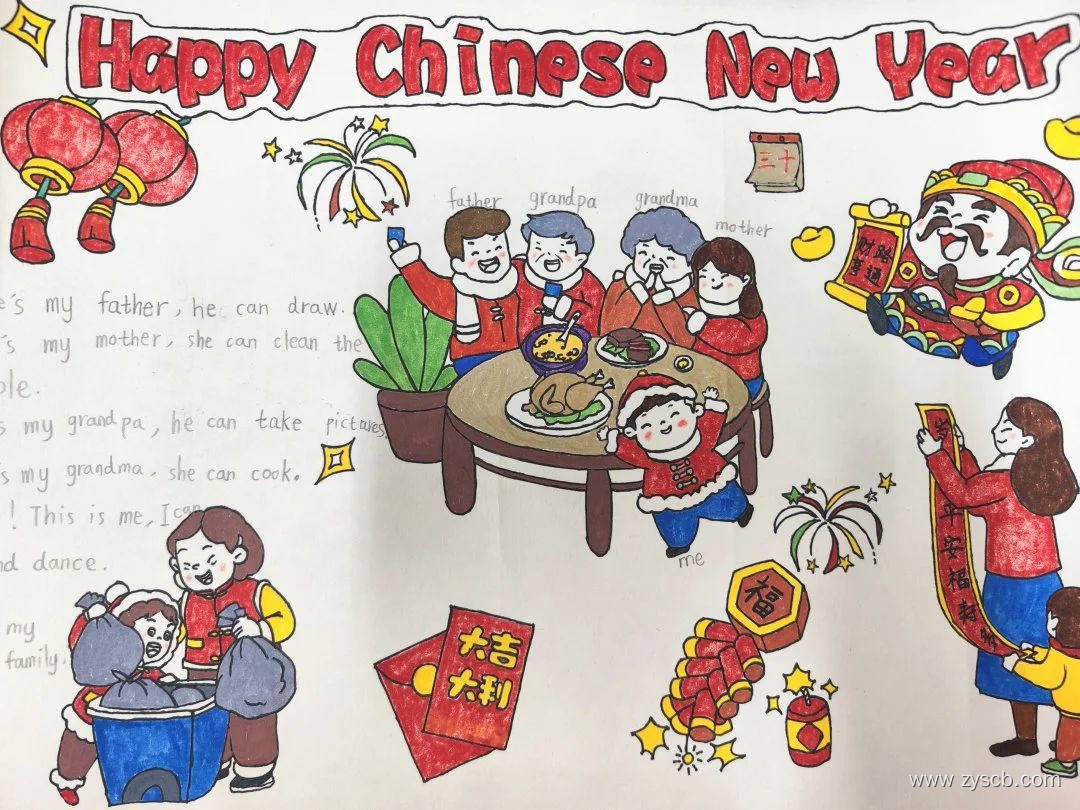 Happy Chinese New Year
三十
father grandpa grandma
mother
财路
亨通
my father, he can draw.
my mother, she can clean the
my grandpa, he can take pictures.
my grandma, she can cook.
! This is me, I can
dance.
my
family.
me
平安福
福
大吉
大利
www.zyscb.com